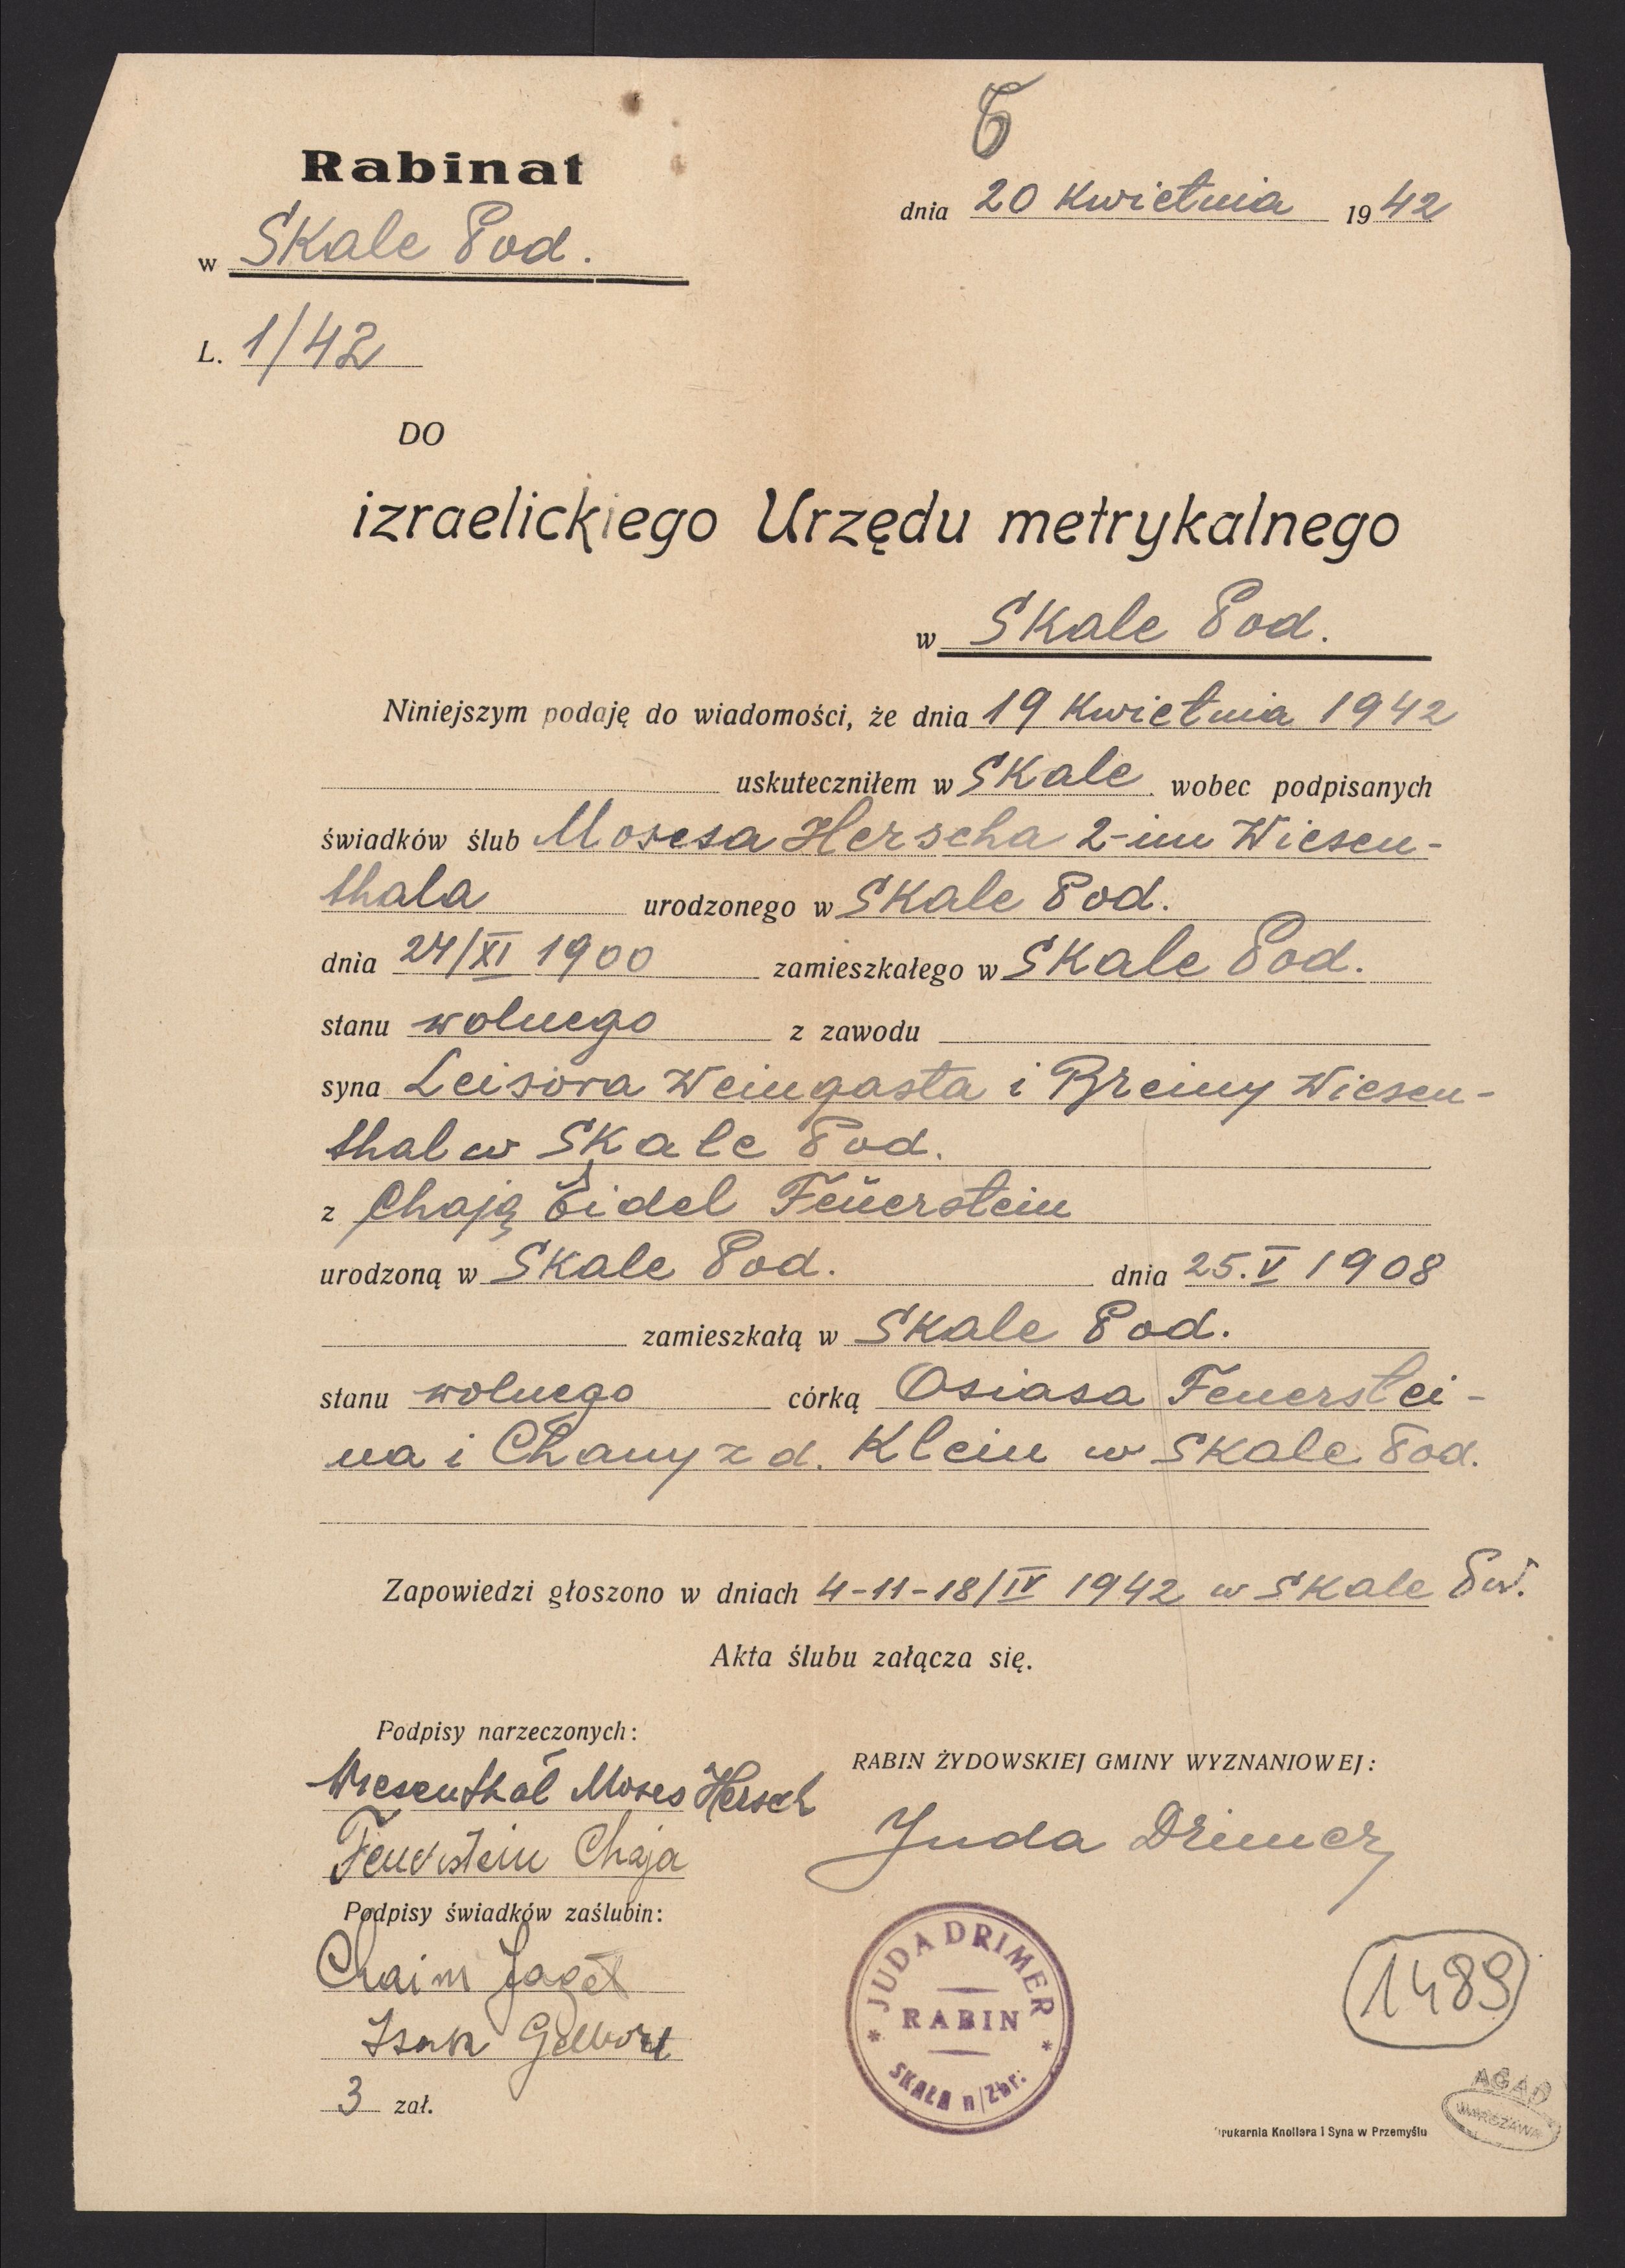 6
Rabinat
dnia 20 Kwietnia 1942
w Skale Pod.
L. 1/42
DO
izraelickiego Urzędu metrykalnego
w Skale Pod.
Niniejszym podaję do wiadomości, że dnia 19 Kwietnia 1942
uskuteczniłem w Skale wobec podpisanych
świadków ślub Mosesa Herscha 2-im Wiesen-
thala urodzonego w Skale Pod.
dnia 24/XI 1900 zamieszkałego w Skale Pod.
stanu wolnego z zawodu
syna Leisora Weingasta i Breiny Wiesen-
thal w Skale Pod.
z Chają Eidel Feuerstein
urodzoną w Skale Pod. dnia 25.V 1908
zamieszkałą w Skale Pod.
stanu wolnego córką Osiasa Feuerstei-
na i Chany z d. Klein w Skale Pod.
Zapowiedzi głoszono w dniach 4-11-18/IV 1942 w Skale
Akta ślubu załącza się.
Podpisy narzeczonych:
RABIN ŻYDOWSKIEJ GMINY WYZNANIOWEJ:
Wiesenthal Moses Hersch
Juda Drimer
Feuerstein Chaja
Podpisy świadków zaślubin:
Chaim
Isak
JUDA DRIMER
RABIN
SKAŁA n/Zbr:
1489
3 zał.
AGAD
WARSZAWA
rukarnia Knollera i Syna w Przemyślu